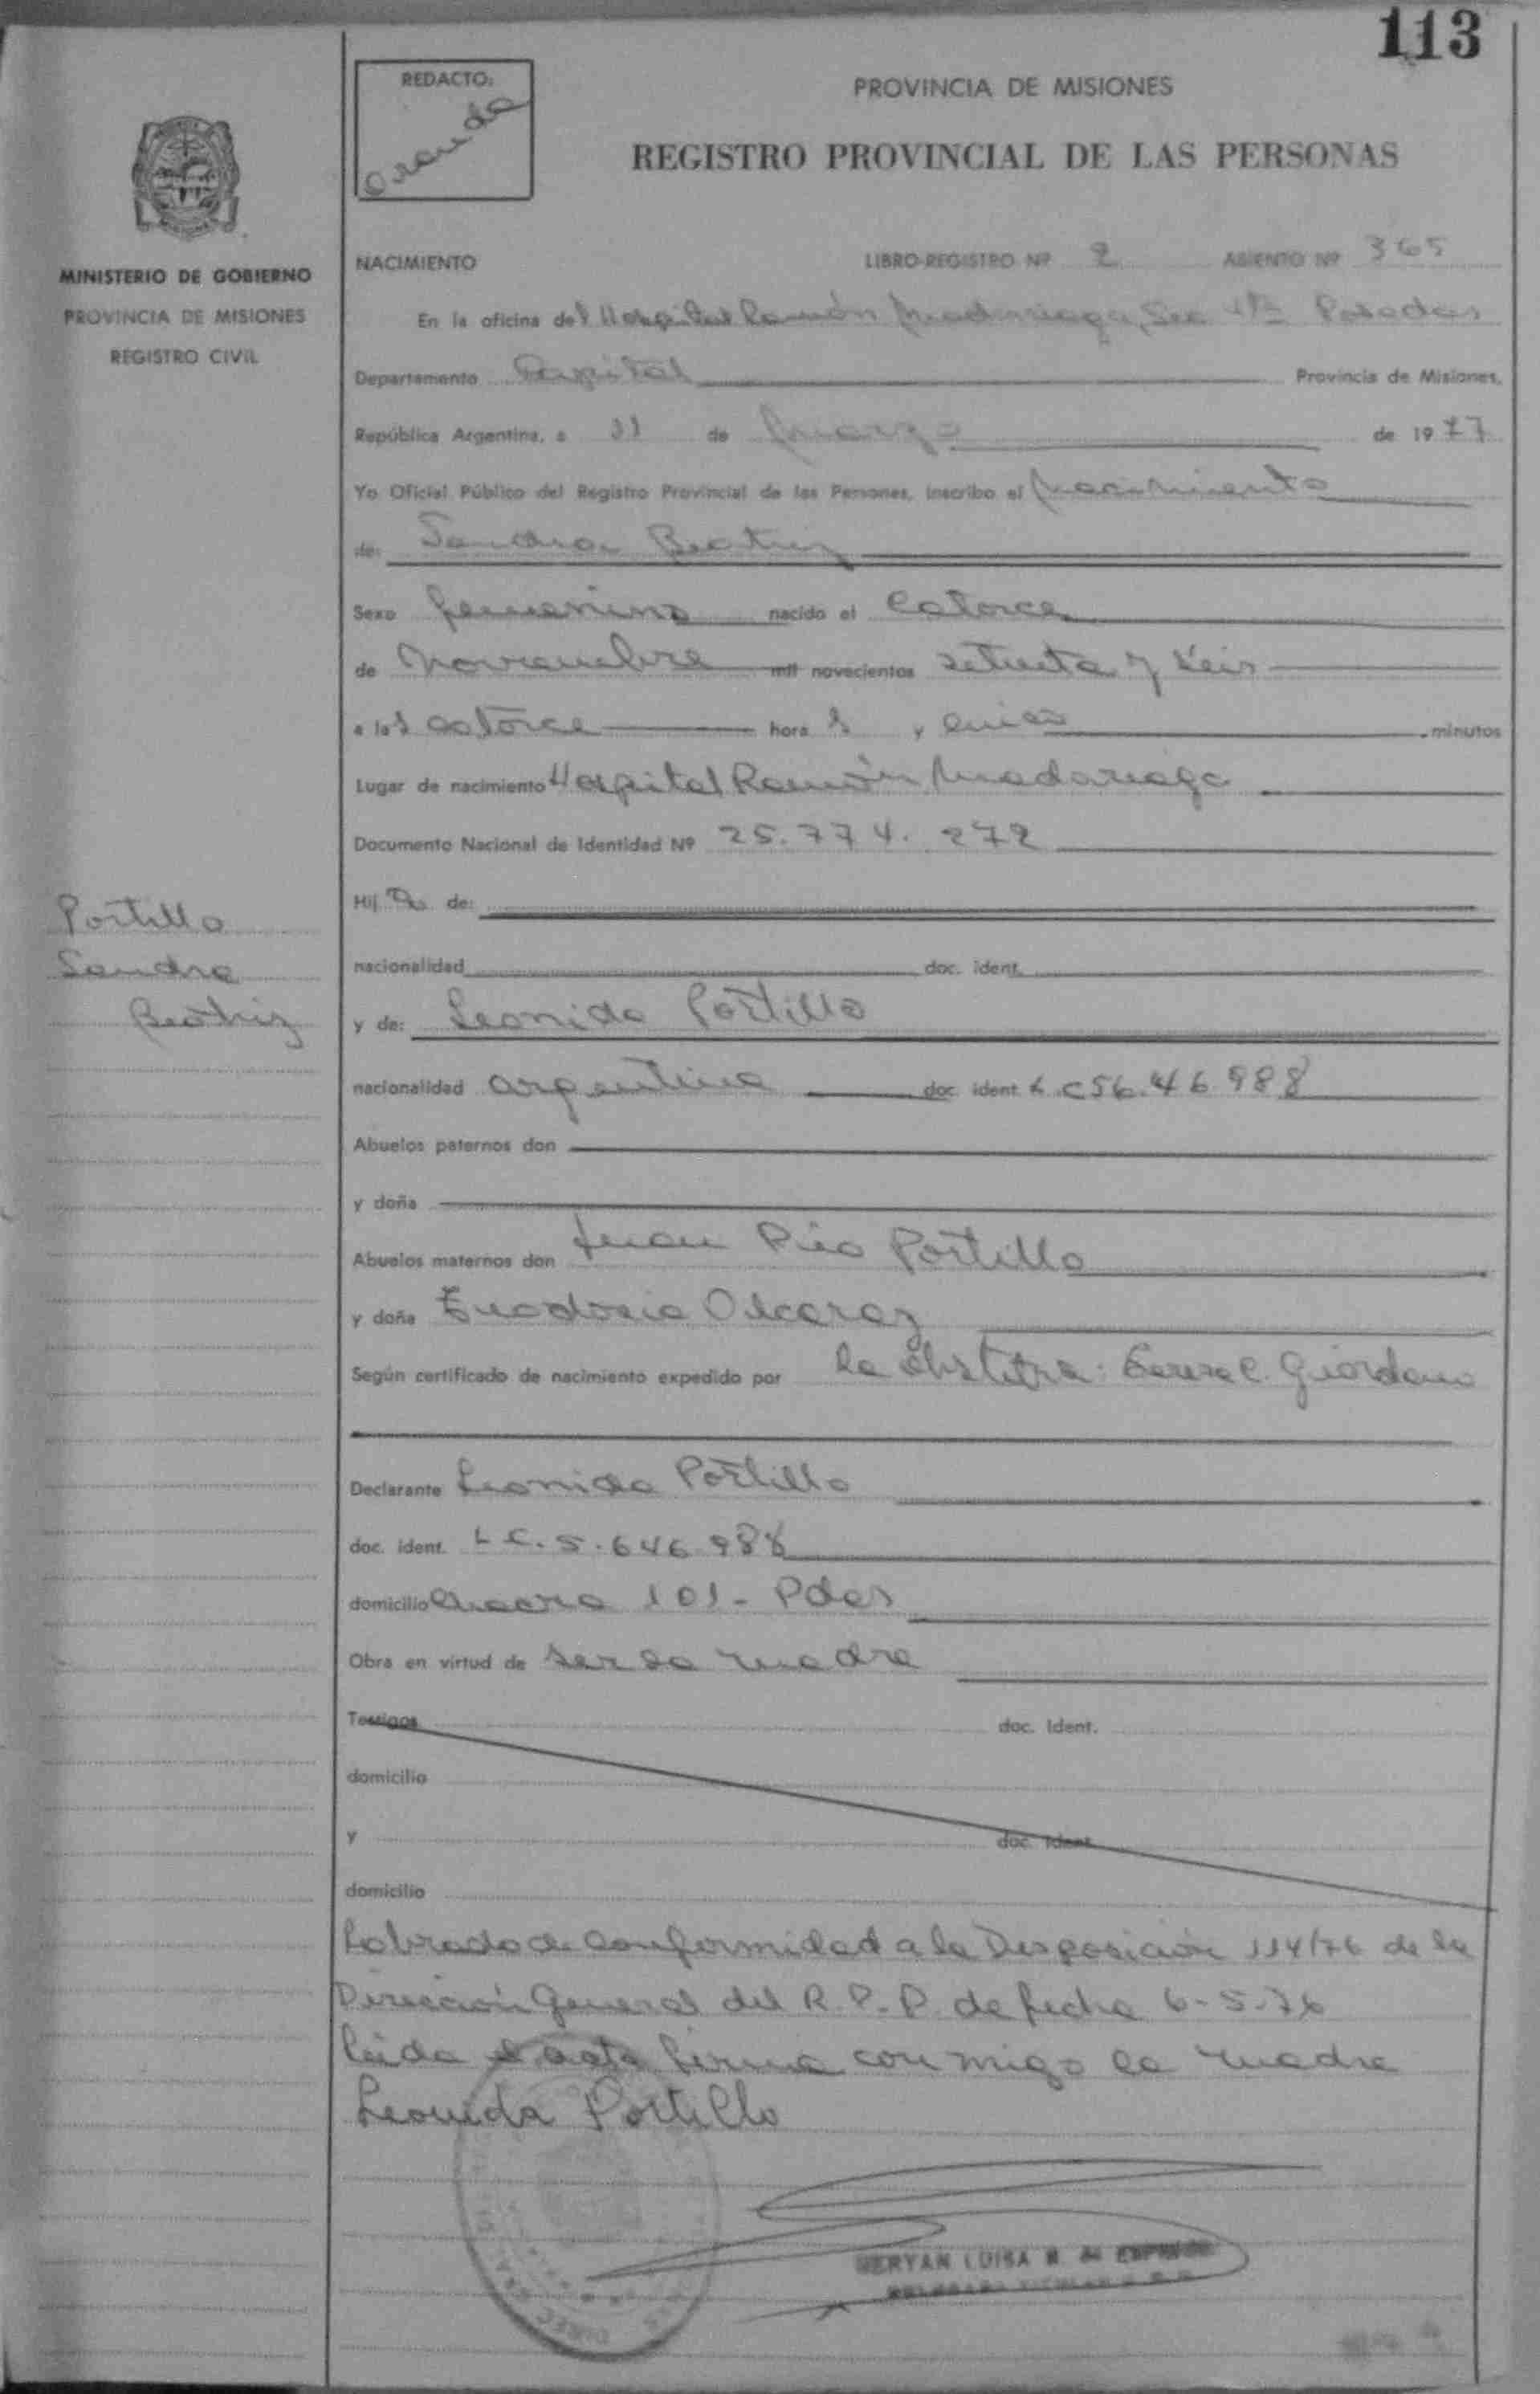 113
REDACTO:
PROVINCIA DE MISIONES
REGISTRO PROVINCIAL DE LAS PERSONAS
MINISTERIO DE GOBIERNO
PROVINCIA DE MISIONES
REGISTRO CIVIL
NACIMIENTO LIBRO-REGISTRO Nº 2 ASIENTO Nº 365
En la oficina del Hospital Ramón Madariaga, Sec Posadas
Departamento Capital Provincia de Misiones,
República Argentina, a 31 de Marzo de 1977
Yo Oficial Público del Registro Provincial de las Personas, inscribo el Nacimiento
de: Sandra Beatriz
Sexo femenino nacido el Catorce
de Noviembre mil novecientos setenta y seis
a las catorce hora s y cinco minutos
Lugar de nacimiento Hospital Ramón Madariaga
Documento Nacional de Identidad Nº 25.774.272
Hij a de:
nacionalidad doc. ident.
y de: Leonida Portillo
nacionalidad argentina doc. ident. L.C 56.46.988
Abuelos paternos don
y doña
Abuelos maternos don Juan Pío Portillo
y doña
Según certificado de nacimiento expedido por la Giordano
Declarante Leonida Portillo
doc. ident. L.C. 5.646.988
domicilio 101 - Pdas
Obra en virtud de ser la madre
Testigos doc. Ident.
domicilio
y doc. Ident.
domicilio
Portillo
Sandra
Beatriz
Labrado de conformidad a la Disposición 114/76 de la
Dirección General del R.P.P. de fecha 6-5-76
leída el acta firma conmigo la madre
Leonida Portillo
LUISA